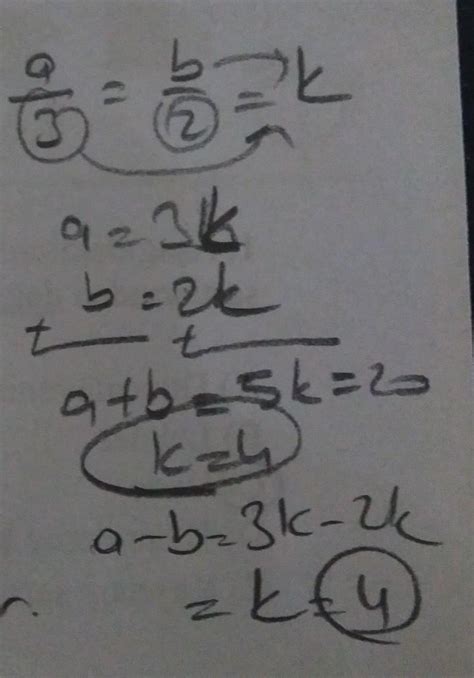 a/3 = b/2 = k
a = 3k
b = 2k
+ +
a+b = 5k = 20
k = 4
a-b = 3k - 2k
= k = 4